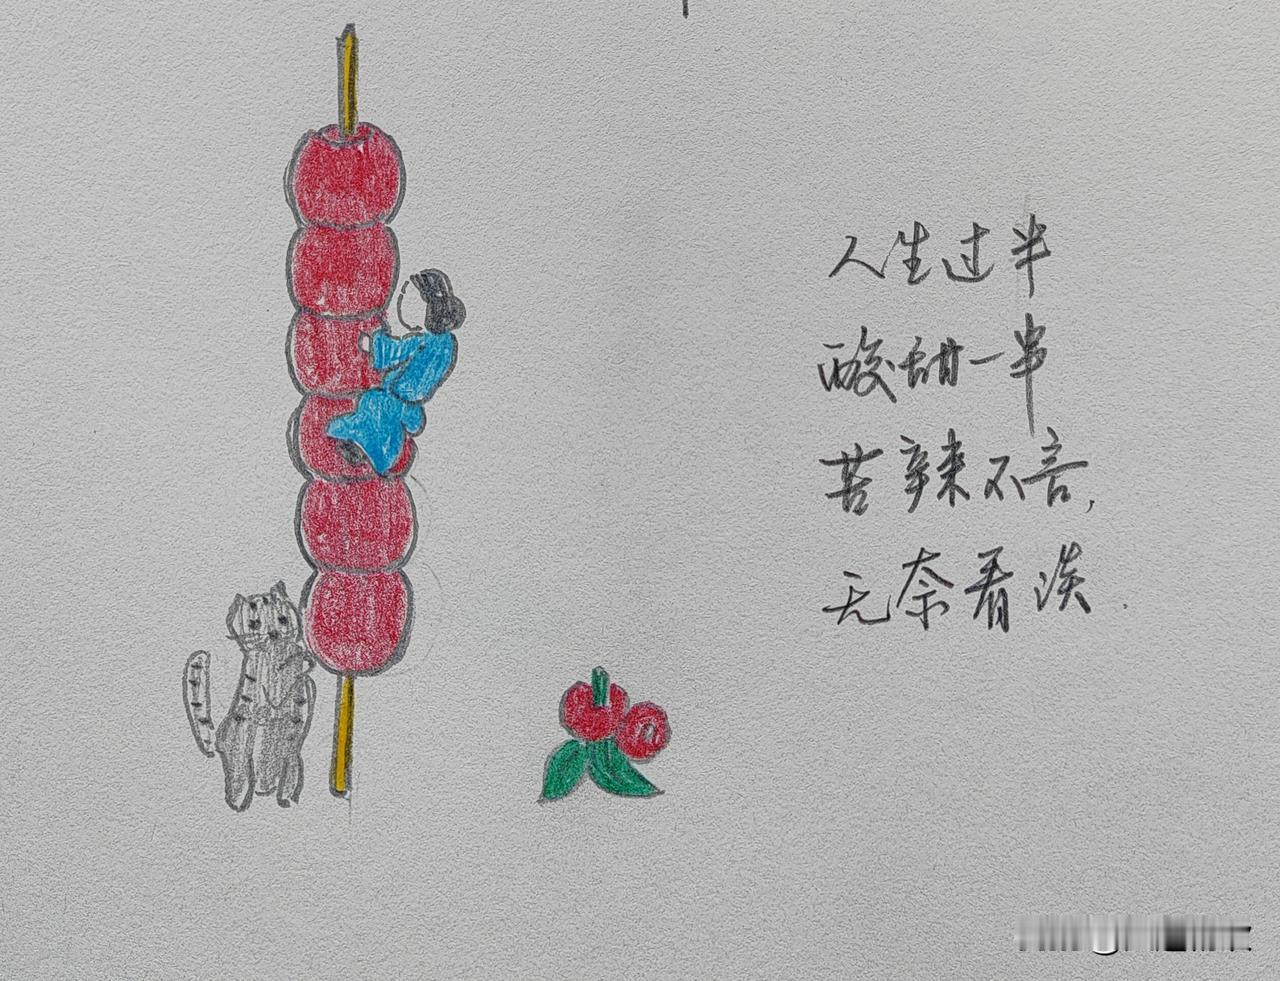 人生过半
酸甜一串
苦辣不言,
无奈看淡.